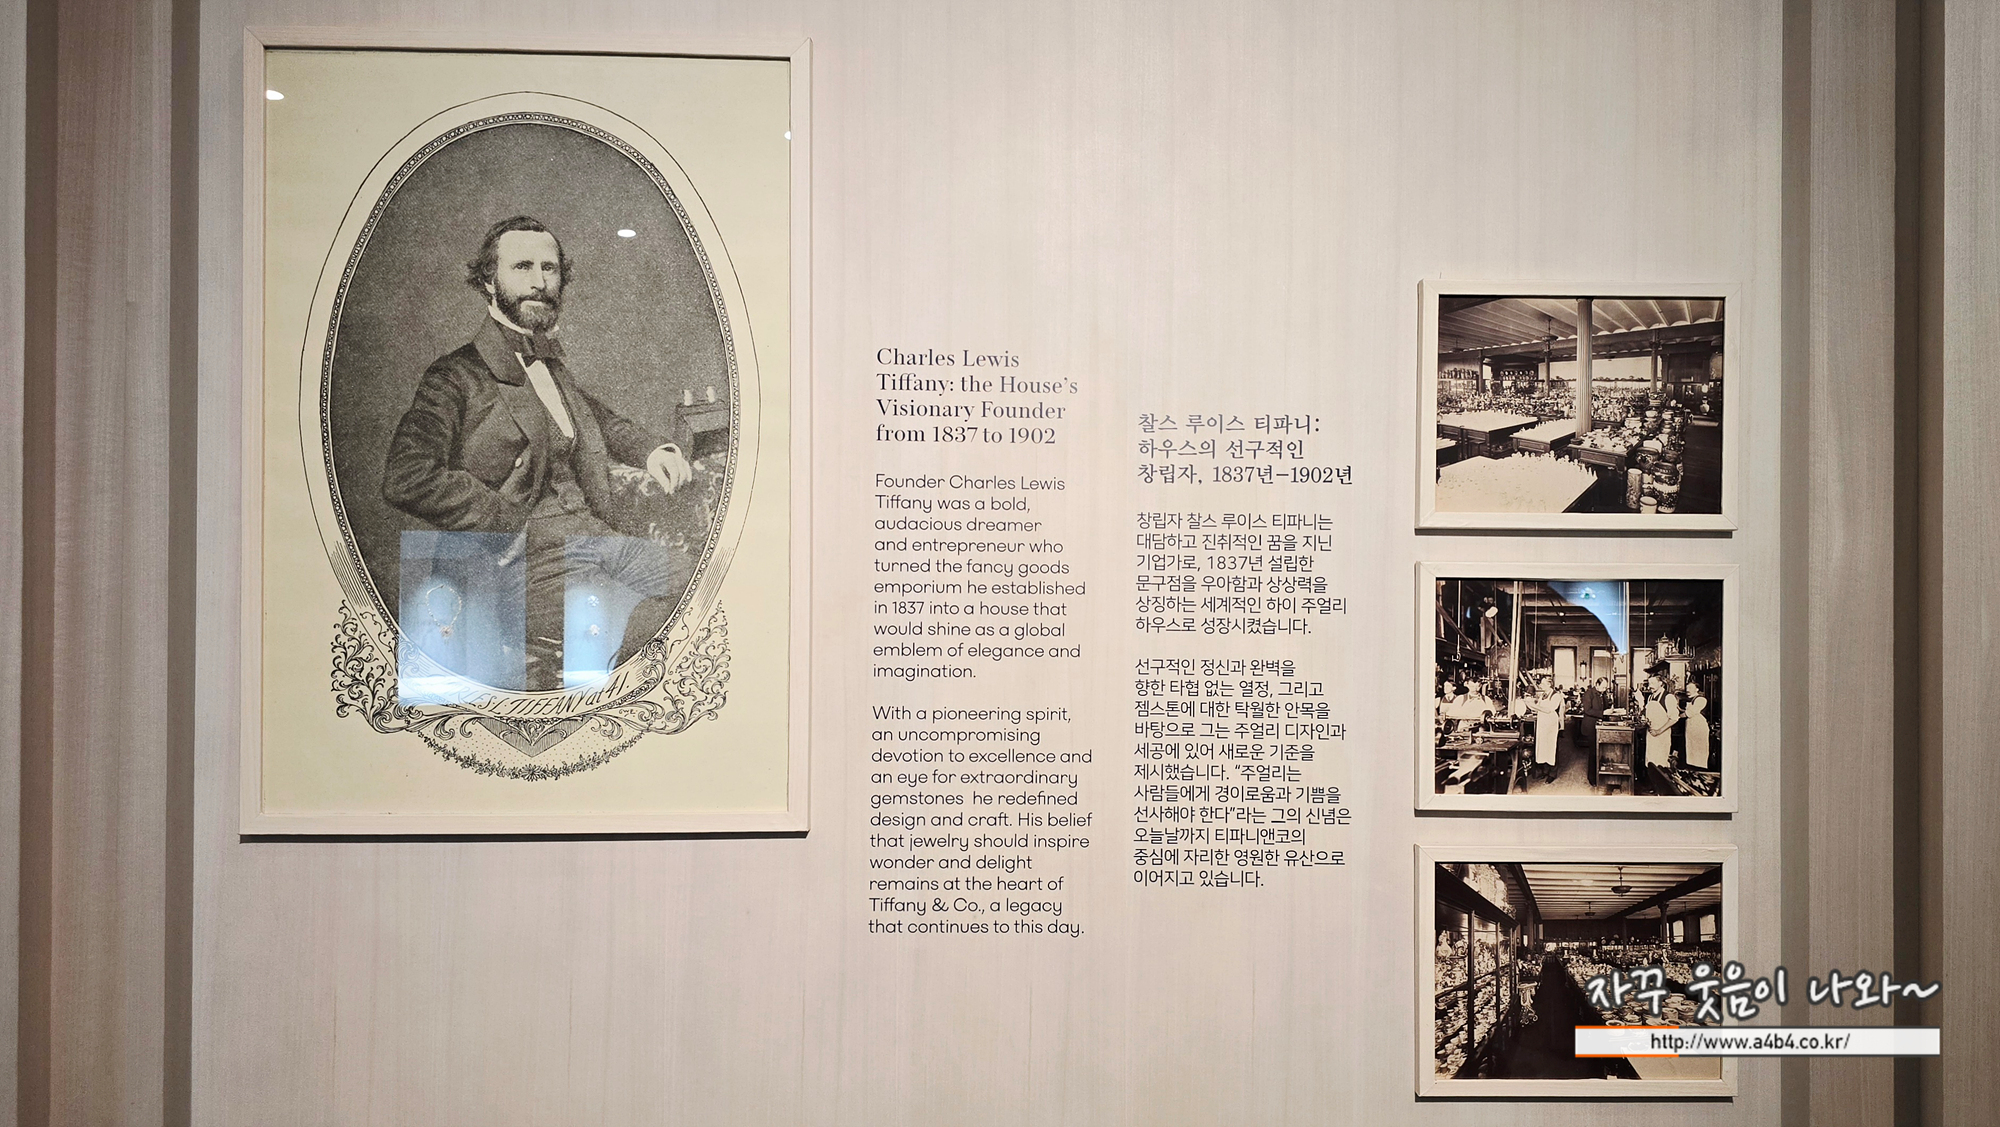 Charles Lewis
Tiffany: the House's
Visionary Founder
from 1837 to 1902
Founder Charles Lewis
Tiffany was a bold,
audacious dreamer
and entrepreneur who
turned the fancy goods
emporium he established
in 1837 into a house that
would shine as a global
emblem of elegance and
imagination.
With a pioneering spirit,
an uncompromising
devotion to excellence and
an eye for extraordinary
gemstones he redefined
design and craft. His belief
that jewelry should inspire
wonder and delight
remains at the heart of
Tiffany & Co., a legacy
that continues to this day.
찰스 루이스 티파니:
하우스의 선구적인
창립자, 1837년–1902년
창립자 찰스 루이스 티파니는
대담하고 진취적인 꿈을 지닌
기업가로, 1837년 설립한
문구점을 우아함과 상상력을
상징하는 세계적인 하이 주얼리
하우스로 성장시켰습니다.
선구적인 정신과 완벽을
향한 타협 없는 열정, 그리고
젬스톤에 대한 탁월한 안목을
바탕으로 그는 주얼리 디자인과
세공에 있어 새로운 기준을
제시했습니다. “주얼리는
사람들에게 경이로움과 기쁨을
선사해야 한다”라는 그의 신념은
오늘날까지 티파니앤코의
중심에 자리한 영원한 유산으로
이어지고 있습니다.
L. TIFFANY at 41.
자꾸 웃음이 나와~
http://www.a4b4.co.kr/